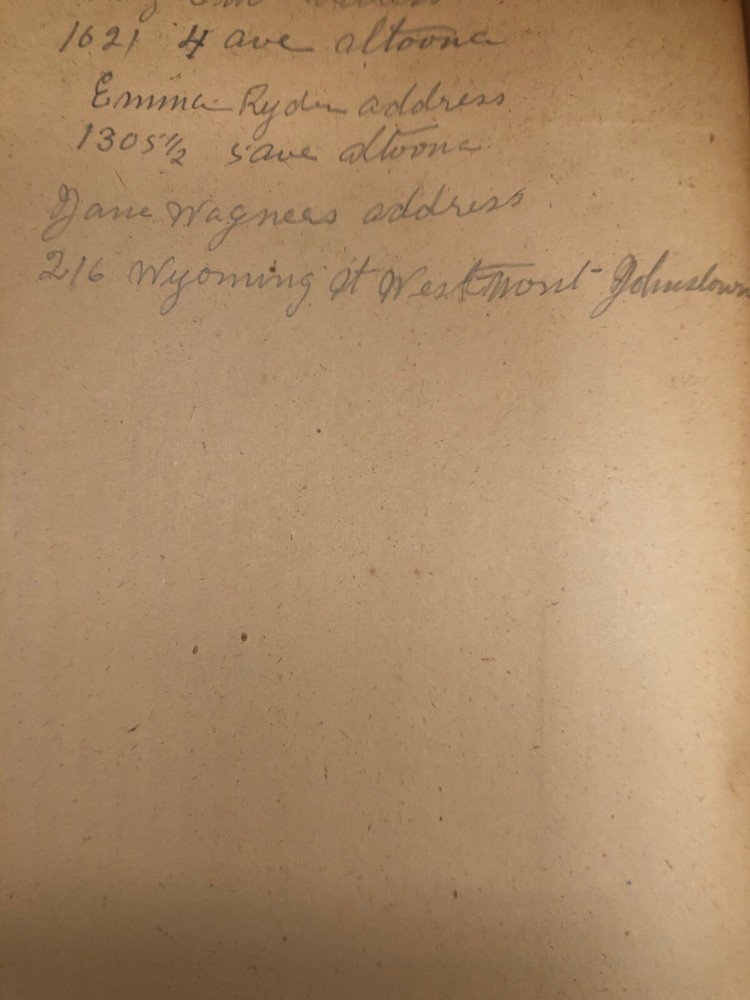 address
1621 4 ave altoona
Emma Ryder address
1305 1/2 5 ave altoona
Jane Wagners address
216 Wyoming St Westmont Johnstown